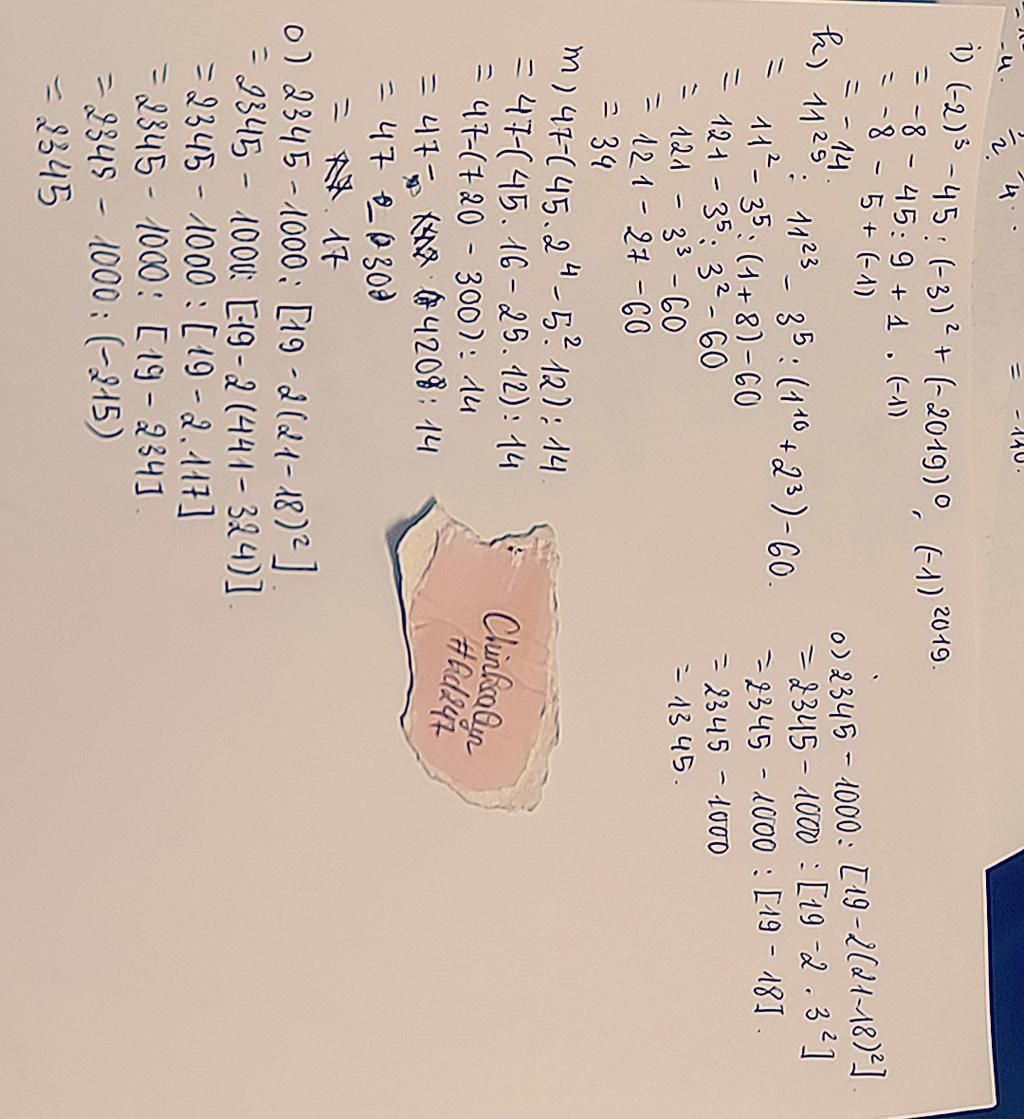 -4.
2.
4.
= -110.
i) (-2)³ - 45 : (-3)² + (-2019)⁰. (-1)²⁰¹⁹.
= -8 - 45 : 9 + 1 . (-1)
= -8 - 5 + (-1)
= -14.
k) 11²⁵ : 11²³ - 3⁵ : (1¹⁰ + 2³) - 60.
= 11² - 3⁵ : (1 + 8) - 60
= 121 - 3⁵ : 3² - 60
= 121 - 3³ - 60
= 121 - 27 - 60
= 34
m) 47 - (45 . 2⁴ - 5² . 12) : 14
= 47 - (45 . 16 - 25 . 12) : 14
= 47 - (720 - 300) : 14
= 47 - 420 : 14
= 47 - 30
= 17
o) 2345 - 1000 : [19 - 2(21 - 18)²]
= 2345 - 1000 : [19 - 2(441 - 324)].
= 2345 - 1000 : [19 - 2.117]
= 2345 - 1000 : [19 - 234].
= 2345 - 1000 : (-215)
= 2345
o) 2345 - 1000 : [19 - 2(21 - 18)²].
= 2345 - 1000 : [19 - 2 . 3²]
= 2345 - 1000 : [19 - 18].
= 2345 - 1000
= 1345.
#hd247